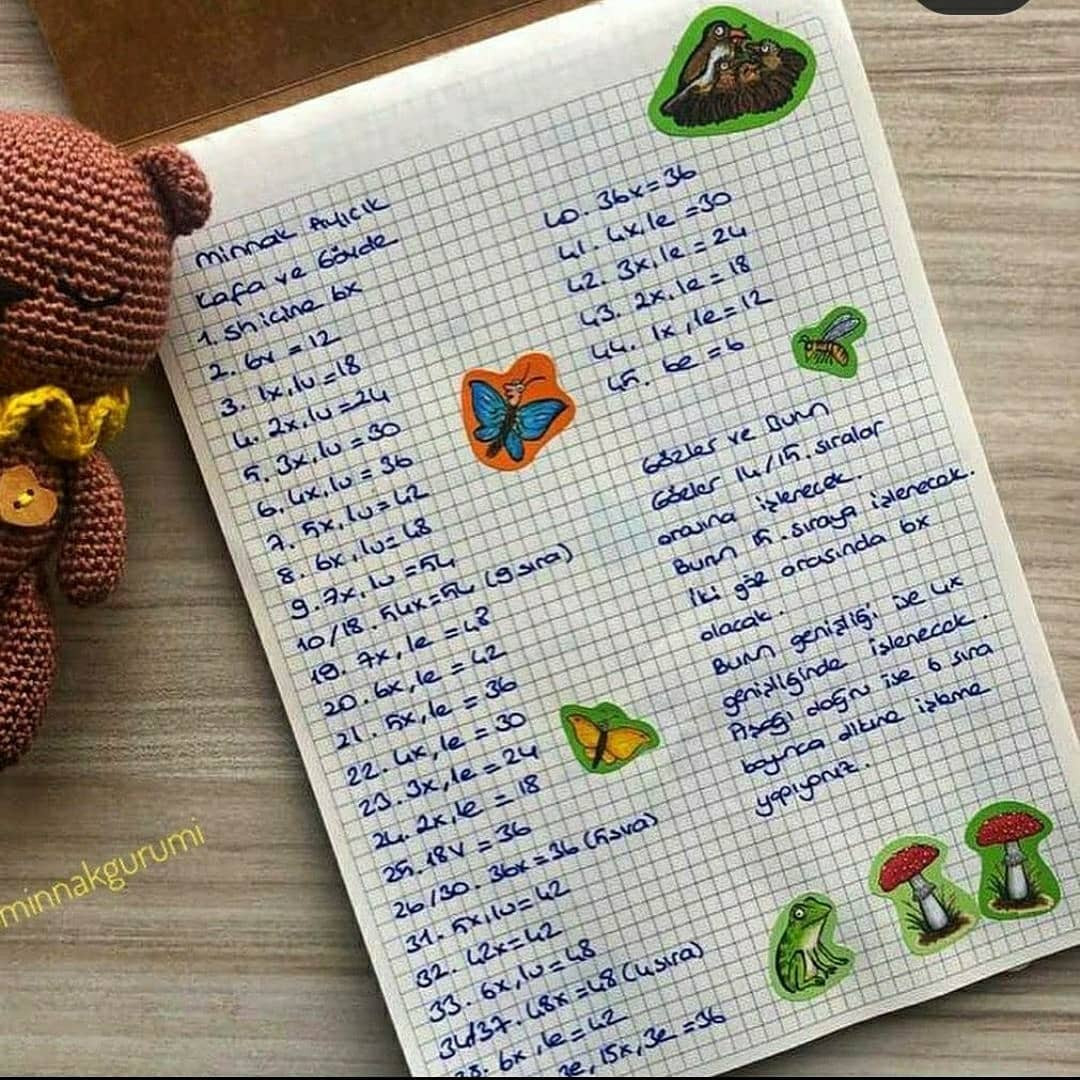 Minnak Ayıcık
Kafa ve Gövde
1. Sh içine 6x
2. 6v = 12
3. 1x,1v = 18
4. 2x,1v = 24
5. 3x,1v = 30
6. 4x,1v = 36
7. 5x,1v = 42
8. 6x,1v = 48
9. 7x,1v = 54
10/18. 54x = 54 (9 sıra)
19. 7x,1e = 48
20. 6x,1e = 42
21. 5x,1e = 36
22. 4x,1e = 30
23. 3x,1e = 24
24. 2x,1e = 18
25. 18v = 36
26/30. 36x = 36 (5 sıra)
31. 5x,1v = 42
32. 42x = 42
33. 6x,1v = 48
34/37. 48x = 48 (4 sıra)
38. 6x,1e = 42
3e, 15x, 3e = 36
40. 36x = 36
41. 4x,1e = 30
42. 3x,1e = 24
43. 2x,1e = 18
44. 1x,1e = 12
45. 6e = 6
Gözler ve Burun
Gözler 14/15. sıralar
arasına işlenecek.
Burun 15. sıraya işlenecek.
İki göz arasında 6x
olacak.
Burun genişliği ise 4x
genişliğinde işlenecek.
Aşağı doğru ise 6 sıra
boyunca dikine işleme
yapıyoruz.
minnakgurumi